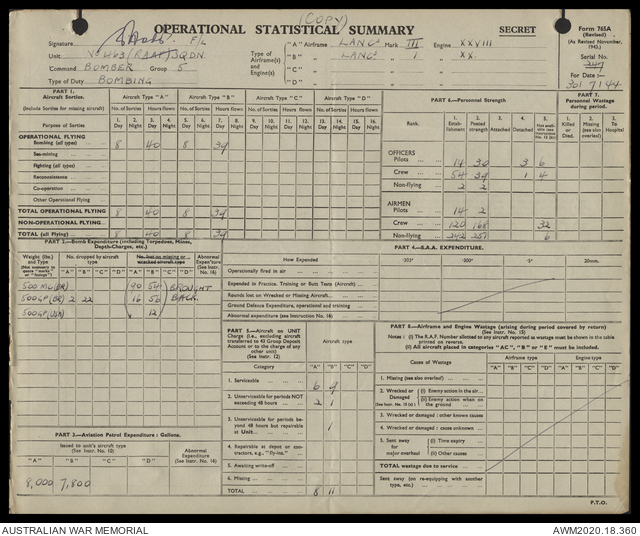 (COPY)
OPERATIONAL STATISTICAL SUMMARY
SECRET
Form 765A
(Revised)
(As Revised November, 1943.)
Signature F/L
Unit No 463 (RAAF) SQDN.
Command BOMBER Group 5
Type of Duty BOMBING
Type of Airframe(s) and Engine(s)
"A" Airframe LANC. Mark III Engine XXVIII
"B" " LANC. " I " XX.
"C" " " "
"D" " " "
Serial No.
For Date :—
30/7/44
PART 1.
Aircraft Sorties.
(Include Sorties for missing aircraft)
Aircraft Type "A" Aircraft Type "B" Aircraft Type "C" Aircraft Type "D"
No. of Sorties Hours flown No. of Sorties Hours flown No. of Sorties Hours flown No. of Sorties Hours flown
Purpose of Sorties
1. Day 2. Night 3. Day 4. Night 5. Day 6. Night 7. Day 8. Night 9. Day 10. Night 11. Day 12. Night 13. Day 14. Night 15. Day 16. Night
OPERATIONAL FLYING
Bombing (all types) ... 8 40 8 39
Sea-mining
Fighting (all types)
Reconnaissance
Co-operation
Other Operational Flying
TOTAL OPERATIONAL FLYING 8 40 8 39
NON-OPERATIONAL FLYING
TOTAL (all Flying) 8 40 8 39
PART 6.—Personnel Strength
Rank.
1. Establishment 2. Posted strength 3. Attached 4. Detached 5. Not available
OFFICERS
Pilots 14 30 3 6
Crew 54 39 1 4
Non-flying 2 2
AIRMEN
Pilots 14 2
Crew 120 168 32
Non-flying 242 251 6
PART 7.
Personnel Wastage during period.
1. Killed or Died. 2. Missing (see also overleaf) 3. To Hospital
PART 2.—Bomb Expenditure (including Torpedoes, Mines, Depth-Charges, etc.)
Weight (lbs.) and Type
No. dropped by aircraft type
No. lost on missing or wrecked aircraft type
Abnormal Expenditure (See Instr. No. 16)
"A" "B" "C" "D" "A" "B" "C" "D"
500 MC (BR) 90 54 BROUGHT
500 GP (BR) 2 22 16 56 BACK.
500 GP (USA) 12
PART 3.—Aviation Petrol Expenditure : Gallons.
Issued to unit's aircraft type
(See Instr. No. 10)
Abnormal Expenditure (See Instr. No. 16)
"A" "B" "C" "D"
8,000 7,800
PART 4.—S.A.A. EXPENDITURE.
How Expended ·303" ·300" ·5" 20mm.
Operationally fired in air
Expended in Practice, Training or Butts Tests (Aircraft)
Rounds lost on Wrecked or Missing Aircraft
Ground Defence Expenditure, operational and training
Abnormal expenditure (see Instruction No. 16)
PART 5.—Aircraft on UNIT Charge (i.e., excluding aircraft transferred to 43 Group Deposit Account or to the charge of any other unit)
(See Instr. 12)
Aircraft type
Category "A" "B" "C" "D"
1. Serviceable 6 9
2. Unserviceable for periods NOT exceeding 48 hours 2 1
3. Unserviceable for periods beyond 48 hours but repairable at Unit 1
4. Repairable at depot or contractors, e.g., "fly-ins."
5. Awaiting write-off
6. Missing
TOTAL 8 11
PART 8.—Airframe and Engine Wastage (arising during period covered by return)
(See Instr. No. 15)
Notes : (i) The R.A.F. Number allotted to any aircraft reported as wastage must be shown in the table printed on reverse.
(ii) All aircraft placed in categories "AC", "B" or "E" must be included.
Cause of Wastage
Airframe type Engine type
"A" "B" "C" "D" "A" "B" "C" "D"
1. Missing (see also overleaf)
2. Wrecked or Damaged (i) Enemy action in the air
(ii) Enemy action when on the ground
3. Wrecked or damaged : other known causes
4. Wrecked or damaged : cause unknown
5. Sent away for major overhaul (i) Time expiry
(ii) Other Causes
TOTAL wastage due to service
Sent away (on re-equipping with another type, etc.)
P.T.O.
AUSTRALIAN WAR MEMORIAL
AWM2020.18.360